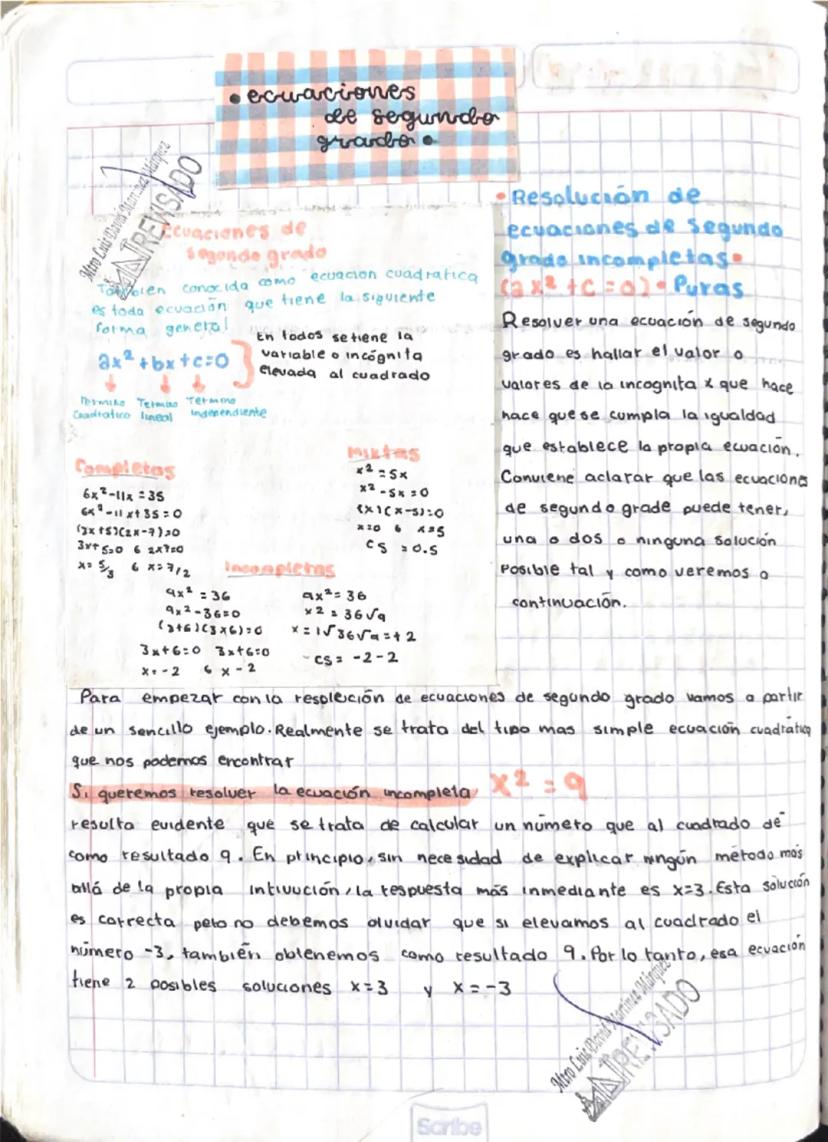 • ecuaciones
de segundo
grado •
Mtro Luis David Martínez Márquez
REVISADO
Ecuaciones de
segundo grado
También conocida como ecuacion cuadratica
es toda ecuación que tiene la siguiente
forma general
ax² + bx + c = 0
En todos se tiene la
variable o incógnita
elevada al cuadrado
Termino Termino Termino
Cuadratico lineal independiente
Completas
6x²-11x=35
6x²-11x+35=0
(3x+5)(2x-7)=0
3x+5=0 6 2x7=0
x=5/3 6 x=7/2
Mixtas
x²=5x
x²-5x=0
(x)(x-5)=0
x=0 6 x=5
CS =0.5
Incompletas
9x²=36
9x²-36=0
(3+6)(3x6)=0
3x+6=0 3x+6=0
x=-2 6 x-2
9x²=36
x2=36√9
x=1√36√9=+2
CS= -2-2
• Resolución de
ecuaciones de segundo
grado incompletas•
(ax² + c = 0) • Puras
Resolver una ecuación de segundo
grado es hallar el valor o
valores de la incognita x que hace
hace que se cumpla la igualdad
que establece la propia ecuación.
Conviene aclarar que las ecuaciona
de segundo grade puede tener,
una o dos o ninguna solución
posible tal y como veremos a
continuación.
Para empezar con la resplección de ecuaciones de segundo grado vamos a partir
de un sencillo ejemplo. Realmente se trata del tipo mas simple ecuación cuadrática
que nos podemos encontrar
Si queremos resolver la ecuación incompleta x² = 9
resulta evidente que se trata de calcular un número que al cuadrado dé
como resultado 9. En principio, sin necesidad de explicar ningún método más
allá de la propia intivución, la respuesta más inmediante es x=3. Esta solución
es correcta pero no debemos olvidar que si elevamos al cuadrado el
número -3, también oblenemos como resultado 9. Por lo tanto, esa ecuación
tiene 2 posibles soluciones x=3 y x=-3
Mtro Luis David Martínez Márquez
REVISADO
Scribe